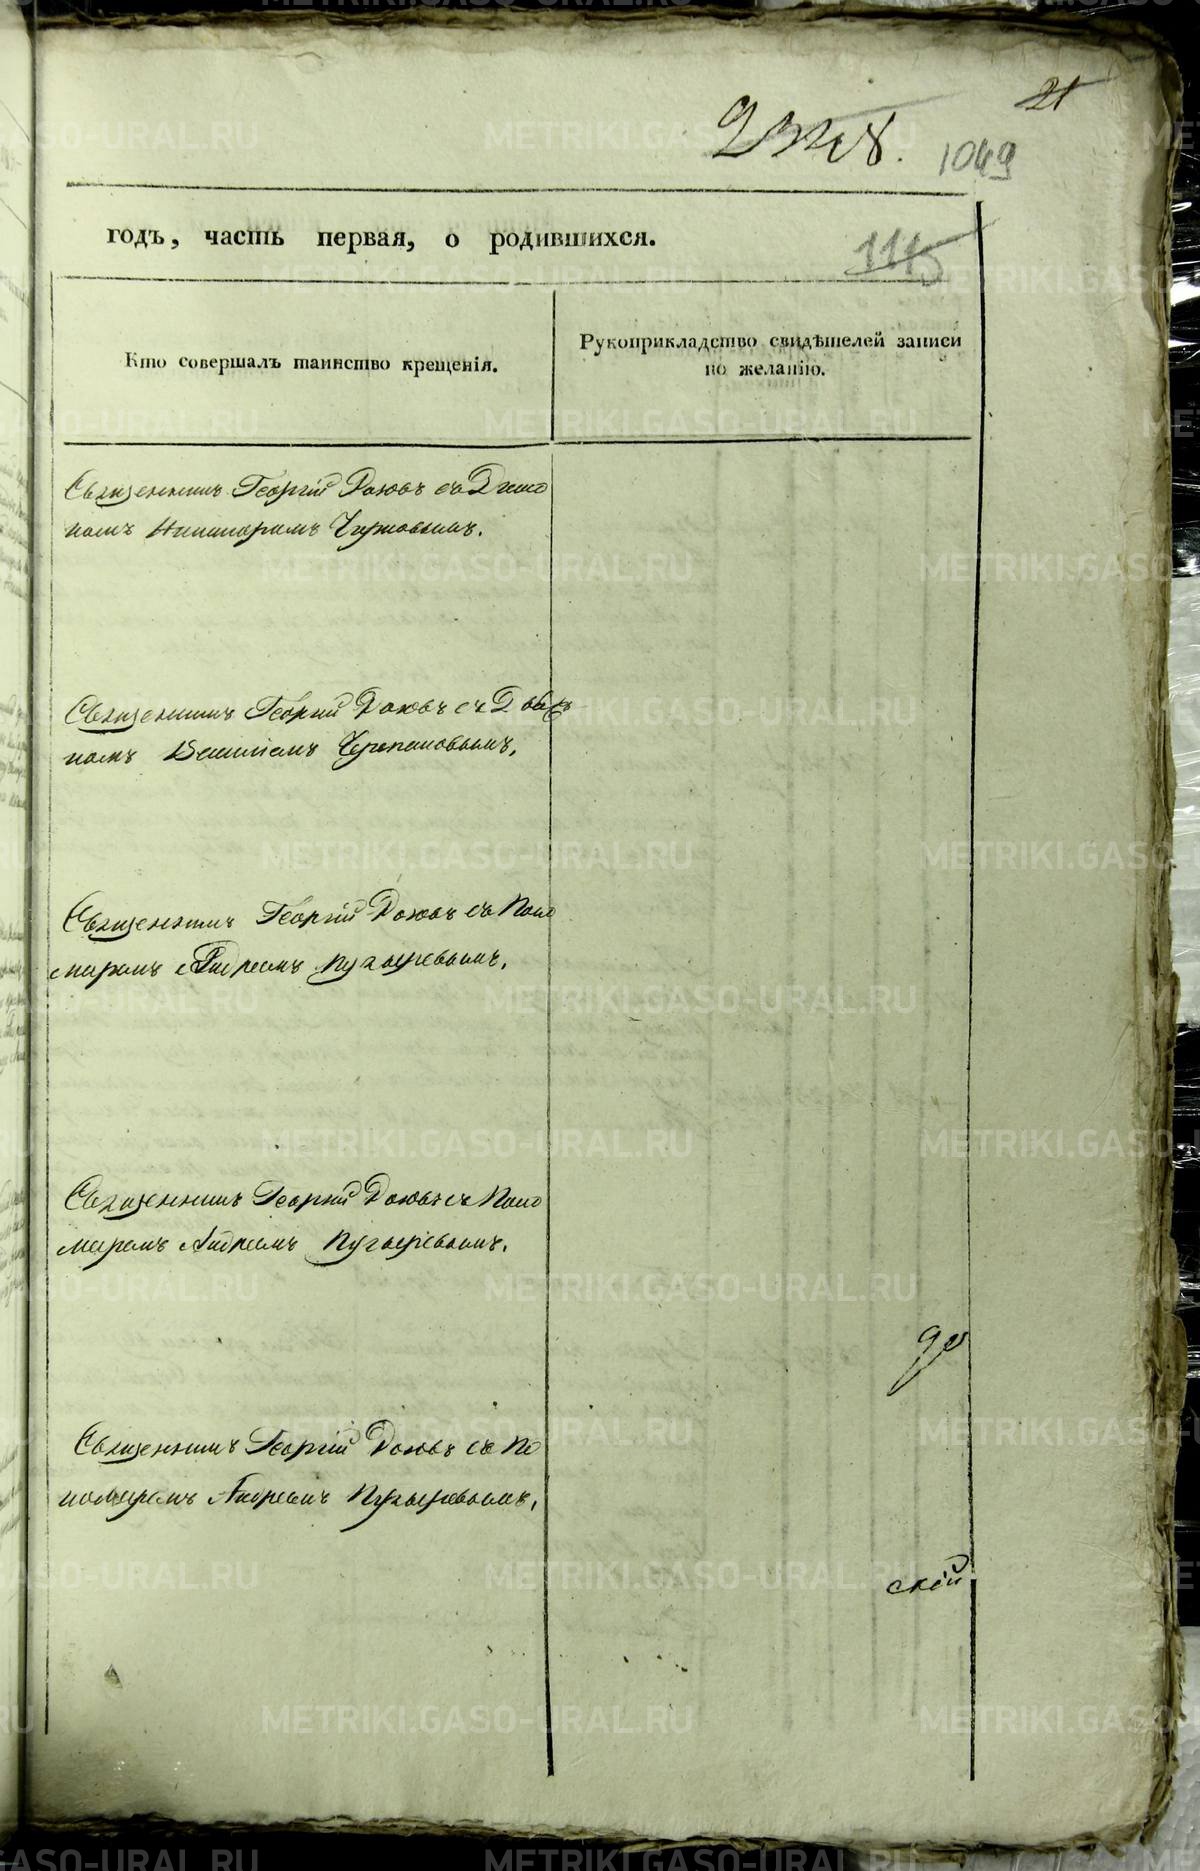 21
1049
годъ, часть первая, о родившихся.
115
Кто совершалъ таинство крещенія.
Рукоприкладство свидѣтелей записи
по желанію.
Священникъ Георгій съ Діако
номъ Никаноромъ
Священникъ Георгій съ
Василіемъ Черепановымъ.
Священникъ Георгій съ Поно
маремъ Андреемъ Пузыревымъ.
Священникъ Георгій съ Поно
маремъ Андреемъ Пузыревымъ.
Священникъ Георгій съ По
номаремъ Андреемъ Пузыревымъ.
ской
METRIKI.GASO-URAL.RU